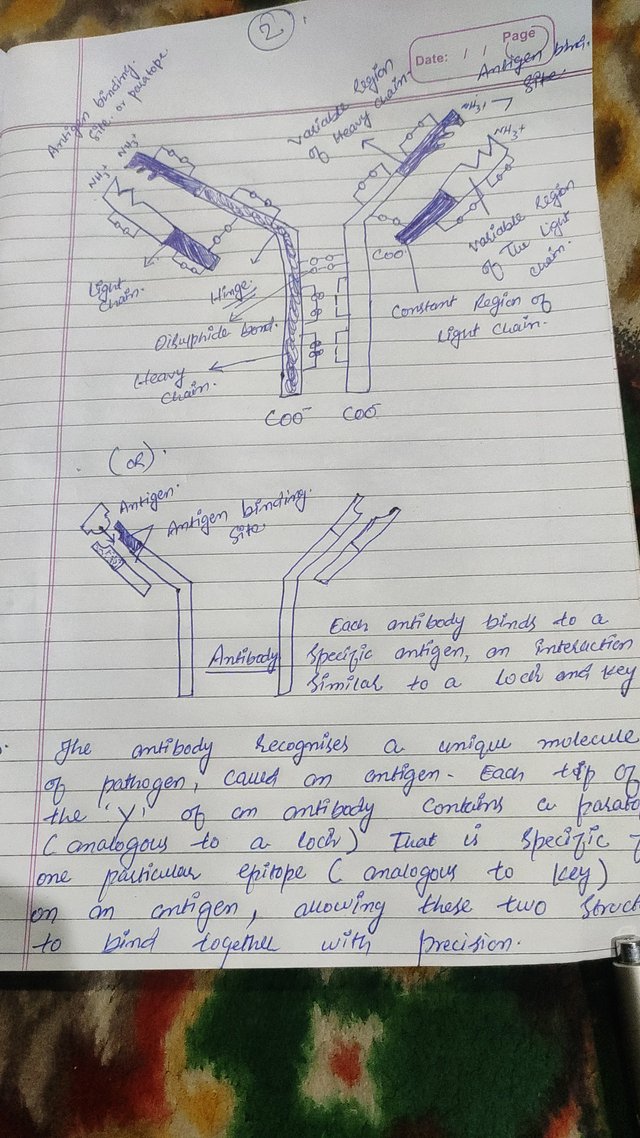 2
Page
Date: / /
Antigen binding
Site or paratope
NH3+
NH3+
Variable Region
of Heavy chain
Antigen bind.
Site
NH3+
NH3+
Light
Chain.
Hinge
Disulphide bond.
Heavy
Chain.
COO
Variable Region
of The Light
Chain.
Constant Region of
Light Chain.
COO-
COO-
(OR).
Antigen.
Antigen binding
Site
Antibody
Each antibody binds to a
specific antigen, an interaction
similar to a lock and key
The antibody recognises a unique molecule
of pathogen, called an antigen. Each tip of
the 'Y' of an antibody contains a parato
(analogous to a lock) That is specific
one particular epitope (analogous to key)
on an antigen, allowing these two struct
to bind together with precision.